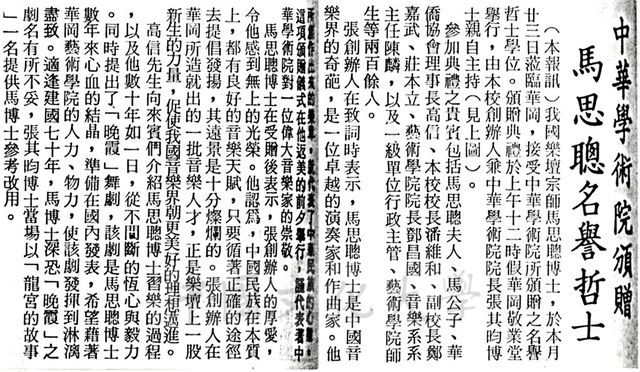 中華學術院頒贈
馬思聰名譽哲士
（本報訊）我國樂壇宗師馬思聰博士，於本月
廿三日蒞臨華岡，接受中華學術院所頒贈之名譽
哲士學位。頒贈典禮於上午十二時假華岡敬業堂
舉行，由本校創辦人兼中華學術院院長張其昀博
士親自主持（見上圖）。
參加典禮之貴賓包括馬思聰夫人、馬公子、華
僑協會理事長高信、本校校長潘維和、副校長鄭
嘉武、莊本立、藝術學院院長鄧昌國、音樂系系
主任陳麟，以及一級單位行政主管、藝術學院師
生等兩百餘人。
張創辦人在致詞時表示，馬思聰博士是中國音
樂界的奇葩，是一位卓越的演奏家和作曲家。他
所創作出來的樂章，就代表了中華民族的心聲。
這項頒贈儀式在他返美的前夕舉行，謹代表著中
華學術院對一位偉大音樂家的崇敬。
馬思聰博士在受贈後表示，張創辦人的厚愛，
令他感到無上的光榮。他認爲，中國民族在本質
上，都有良好的音樂天賦，只要循著正確的途徑
去提倡發揚，其遠景是十分燦爛的。張創辦人在
華岡所造就出的一批音樂人才，正是樂壇上一股
新生的力量，促使我國音樂界朝更美好的理想邁進。
高信先生向來賓們介紹馬思聰博士習樂的過程
，以及他數十年如一日，從不間斷的恆心與毅力
。同時提出了「晚霞」舞劇，該劇是馬思聰博士
數年來心血的結晶，準備在國內發表，希望藉著
華岡藝術學院的人力、物力，使該劇發揮到淋漓
盡致。適逢建國七十年，馬博士深恐「晚霞」之
劇名有所不妥，張其昀博士當場以「龍宮的故事
」一名提供馬博士參考改用。